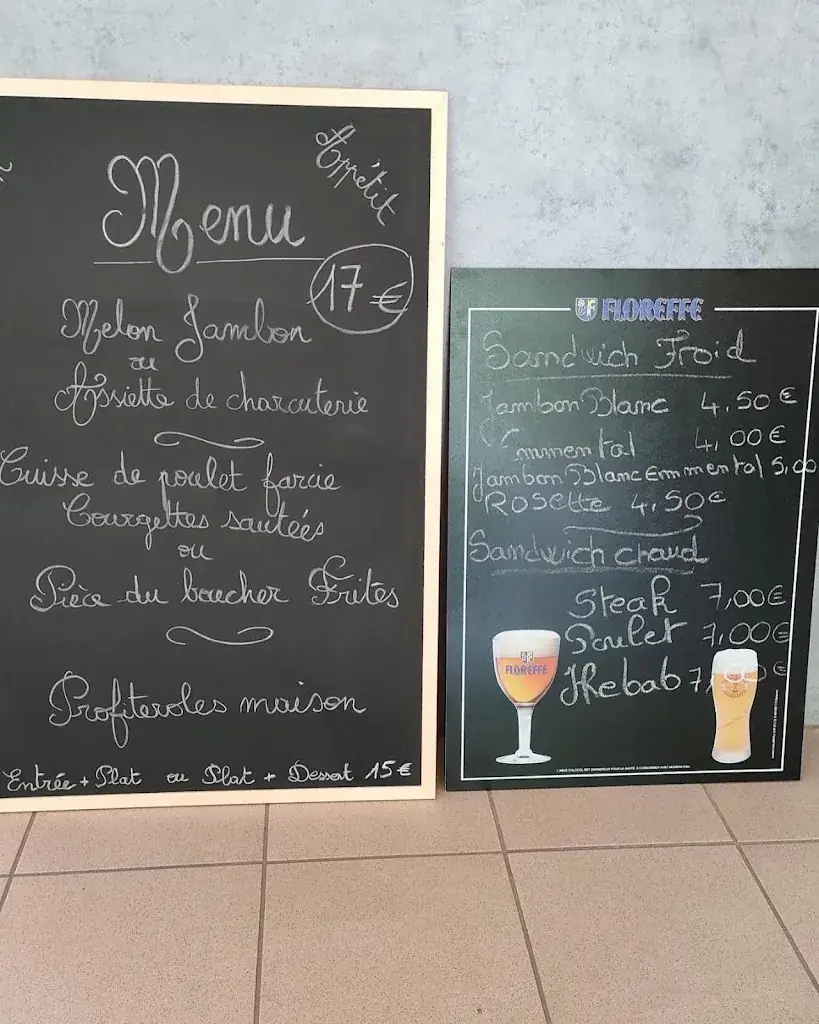 Appétit
Menu
17 €
Melon Jambon
ou
Assiette de charcuterie
Cuisse de poulet farcie
Courgettes sautées
ou
Pièce du boucher Frites
Profiteroles maison
Entrée + Plat ou Plat + Dessert 15 €
FLOREFFE
Sandwich Froid
Jambon Blanc 4,50 €
Emmental 4,00 €
Jambon Blanc Emmental 5,00
Rosette 4,50 €
Sandwich chaud
Steak 7,00 €
Poulet 7,00 €
Kebab 7,00 €
FLOREFFE
L'ABUS D'ALCOOL EST DANGEREUX POUR LA SANTÉ. À CONSOMMER AVEC MODÉRATION.